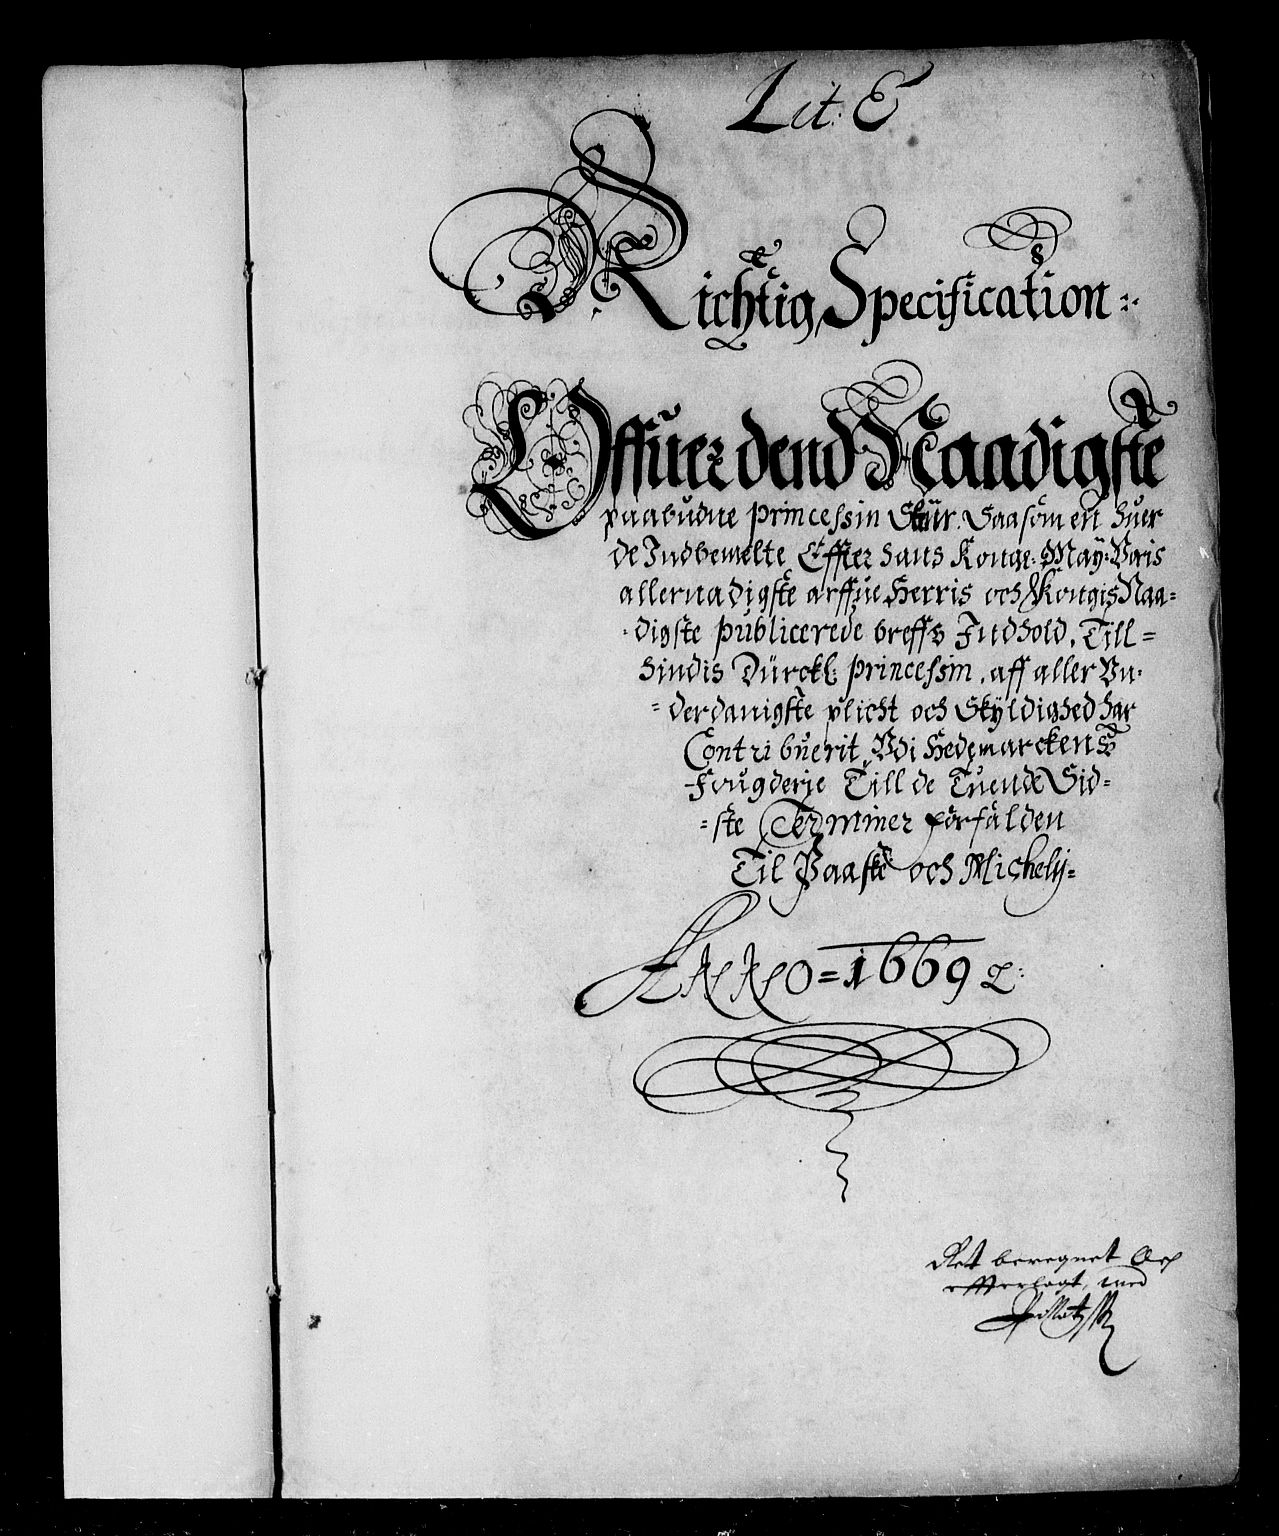 Lit: E
Richtig Specification =
Offuer dend Naadigste
paabudne princessin Skiir. Saasom en huer
de Indbemelte Effter hans Konge: May: Voris
allernadigste arffue Herris och Kongis Naa=
digste publicerede breffs Indhold, Till=
hindis Dürckl: princessin, aff aller Un=
=derdanigste plicht och Skyldighed har
Contribuerit, Udi Hedemarckens
Fougderie Till de Tuende Sid=
=ste Terminer forfalden
Til Paaske och Michely=
ANNO = 1669
Ret beregnet Och
effterlagt, med